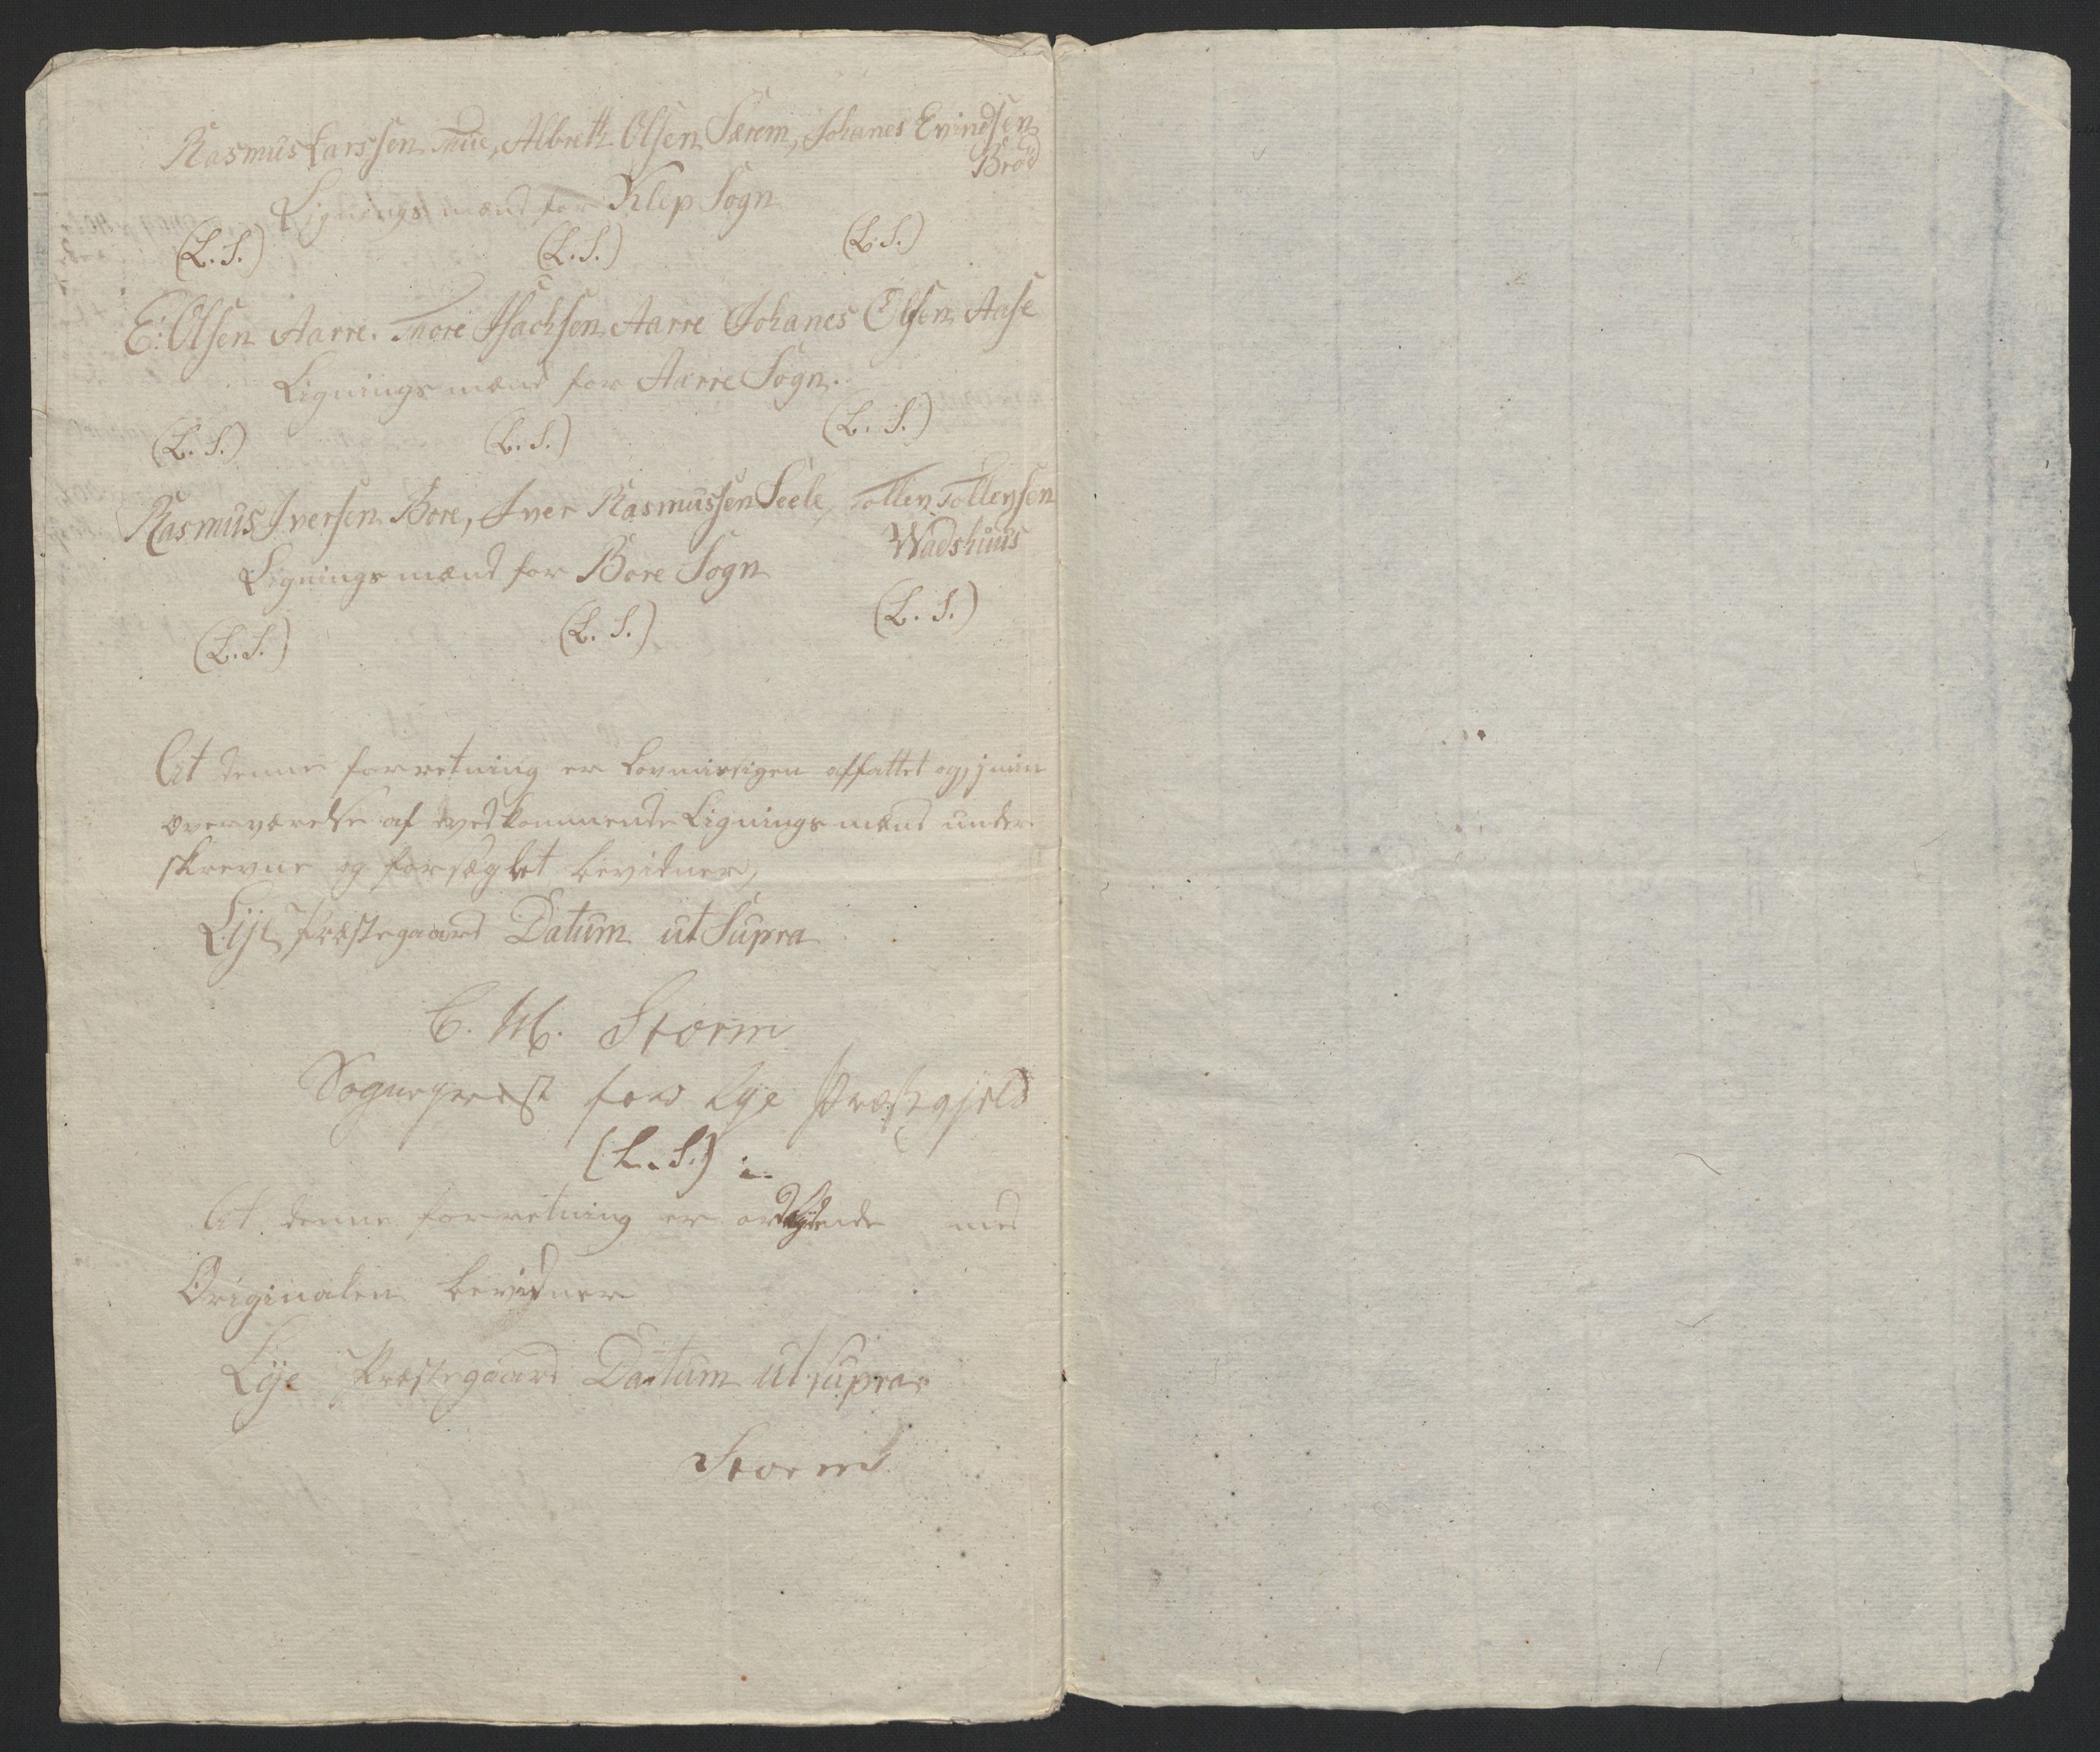 Rasmus Larssen Tiue, Albreth Olsen Særem, Johanes Evindsen
Brød
Lignings mænd for Klep Sogn
(L. S.) (L. S.) (L. S.)
E: Olsen Aarre. Thore Isachsen Aarre Johanes Olsen Aase
Lignings mænd for Aarre Sogn.
(L. S.) (L. S.) (L. S.)
Rasmus Iversen Bore, Iver Rasmussen Seele, Tollev Tollevsen
Wadshuus
Lignings mænd for Bore Sogn
(L. S.) (L. S.) (L. S.)
At denne forretning er Lovmæssigen affattet og i min
overværelse af vedkommende Lignings mænd under
skrevne og forseglet bevidner,
Lye Præstegaard Datum ut Supra
C. M. Storm
Sognepræst for Lye Præstegjeld
(L. S.)
At denne forretning er ordlydende med
Originalen bevidner
Lye Præstegaard Datum ut supra
Storm